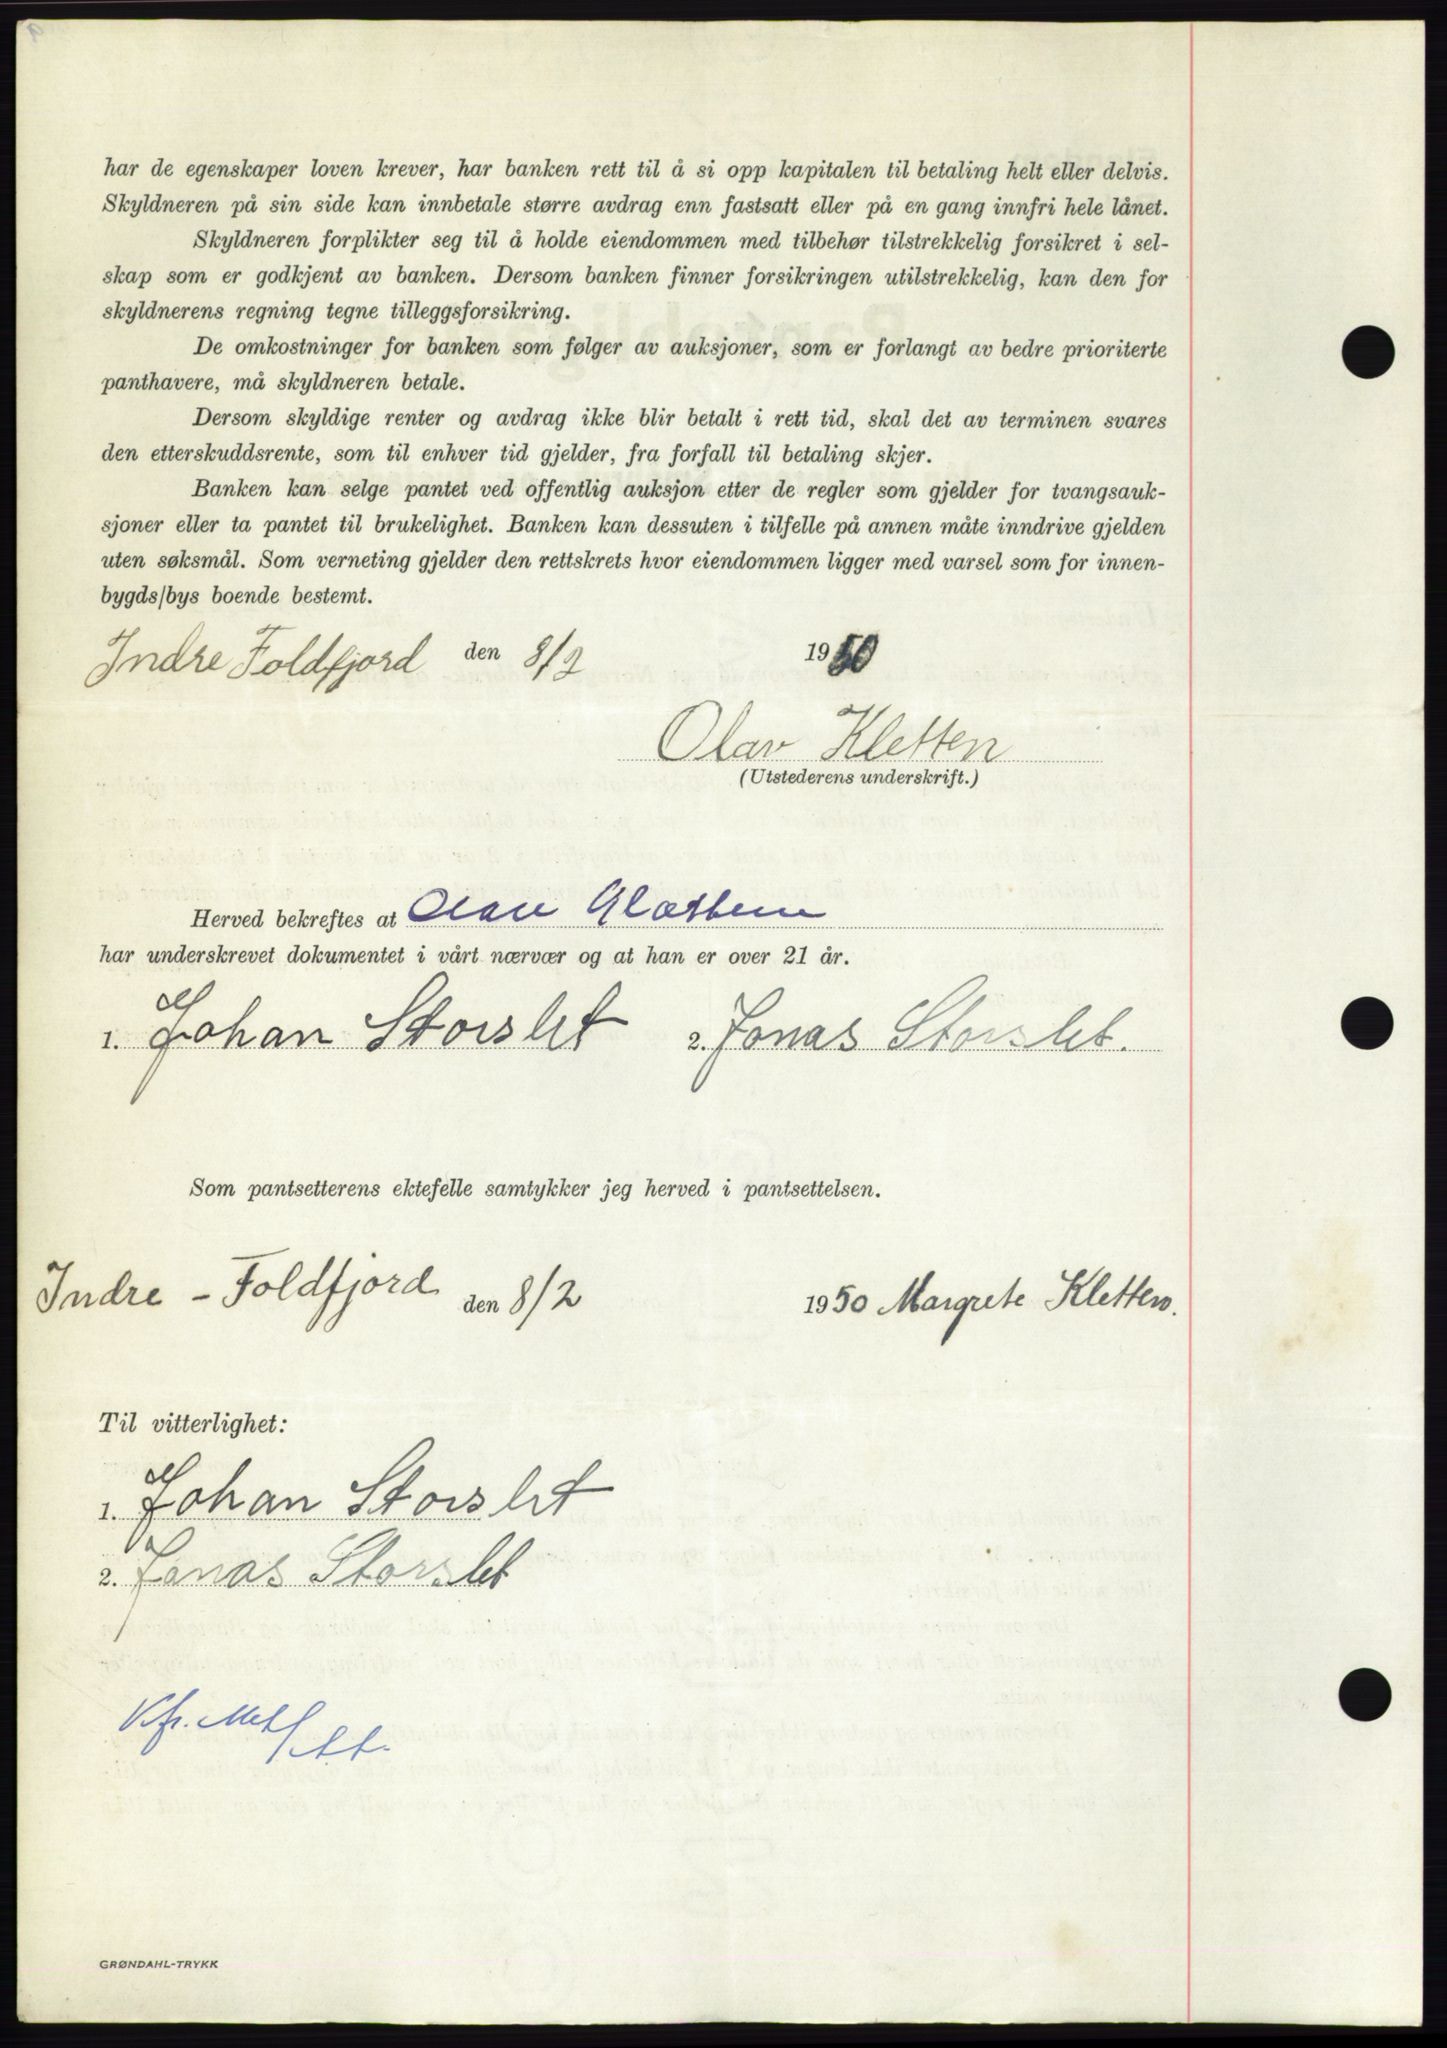 har de egenskaper loven krever, har banken rett til å si opp kapitalen til betaling helt eller delvis.
Skyldneren på sin side kan innbetale større avdrag enn fastsatt eller på en gang innfri hele lånet.
Skyldneren forplikter seg til å holde eiendommen med tilbehør tilstrekkelig forsikret i sel-
skap som er godkjent av banken. Dersom banken finner forsikringen utilstrekkelig, kan den for
skyldnerens regning tegne tilleggsforsikring.
De omkostninger for banken som følger av auksjoner, som er forlangt av bedre prioriterte
panthavere, må skyldneren betale.
Dersom skyldige renter og avdrag ikke blir betalt i rett tid, skal det av terminen svares
den etterskuddsrente, som til enhver tid gjelder, fra forfall til betaling skjer.
Banken kan selge pantet ved offentlig auksjon etter de regler som gjelder for tvangsauk-
sjoner eller ta pantet til brukelighet. Banken kan dessuten i tilfelle på annen måte inndrive gjelden
uten søksmål. Som verneting gjelder den rettskrets hvor eiendommen ligger med varsel som for innen-
bygds/bys boende bestemt.
Indre Foldfjord den 8/2 1950
Olav Kletten
(Utstederens underskrift.)
Herved bekreftes at
har underskrevet dokumentet i vårt nærvær og at han er over 21 år.
1. Johan Storslet 2. Jonas Storslet.
Som pantsetterens ektefelle samtykker jeg herved i pantsettelsen.
Indre - Foldfjord den 8/2 1950 Margrete Kletten.
Til vitterlighet:
1. Johan Storslet
2. Jonas Storslet
GRØNDAHL-TRYKK